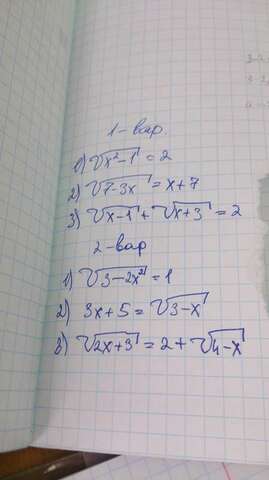 1-вар.
1) √x²-1 = 2
2) √7-3x = x+7
3) √x-1 + √x+3 = 2
2-вар
1) √3-2x² = 1
2) 3x+5 = √3-x
3) √2x+3 = 2+√4-x